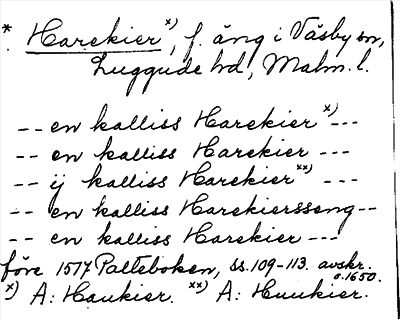 * Harekier x), f. äng i Väsby sn,
Luggude hd, Malm. l.
-- en kalliss Harekier x) ---
-- en kalliss Harekier ---
-- ij kalliss Harekier xx) ---
-- en kalliss Harekiersseng --
-- en kalliss Harekier ---
före 1517 Palteboken, ss. 109-113. avskr.
o. 1650.
x) A: Haukier. xx) A: Huukier.